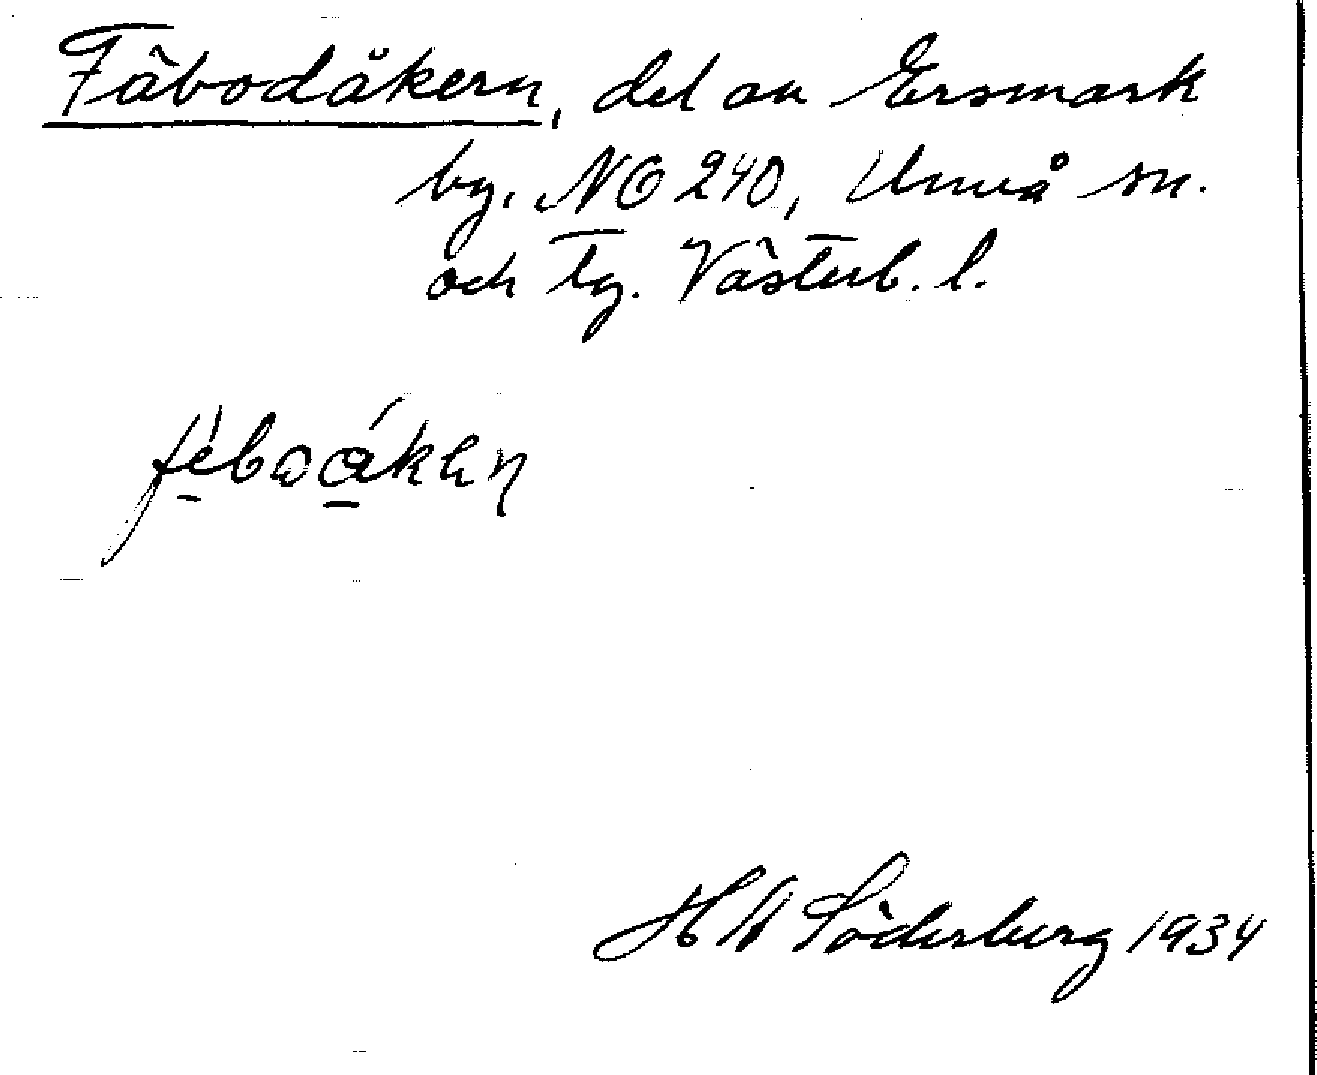 Fäbodåkern, del av Ersmark
by. NO 240, Umeå sn.
och tg. Västerb. l.
Söderberg 1934